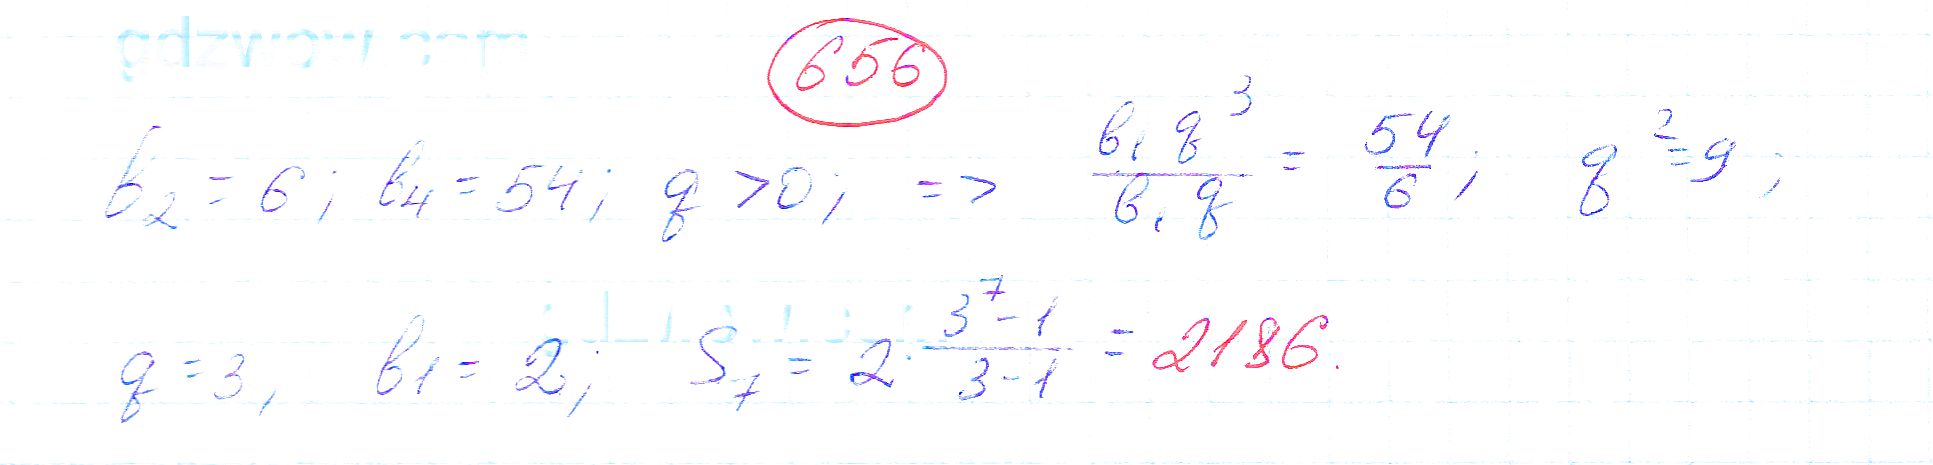 656
b₂ = 6; b₄ = 54; q > 0; => b₁q³/b₁q = 54/6; q² = 9;
q = 3, b₁ = 2; S₇ = 2 · (3⁷ - 1)/(3 - 1) = 2186.